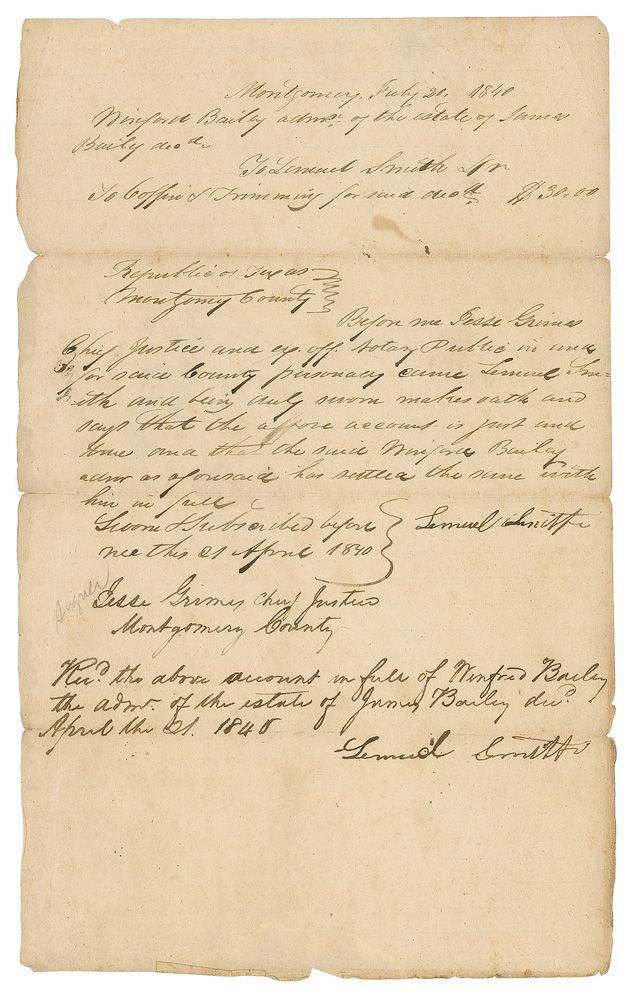 Montgomery July 20, 1840
Winford Bailey admr of the estate of James
Baily decd
To Lemuel Smith Dr
To Coffin & Trimming for said decd $30.00
Republic of Texas
Montgomy County
Before me Jesse Grimes
Chief Justice and ex. off. Notary Public in and
for said County personaly came Lemuel Sm-
-ith and being duly sworn makes oath and
says that the above account is just and
true and that the said Winford Bailey
admr as aforesaid has settled the same with
him in full
Sworn & Subscribed before
me this 21 April 1840
Lemuel Smith
signer
Jesse Grimes Chief Justice
Montgomery County
Recd the above account in full of Winfred Bailey
the admr. of the estate of James Bailey decd.
April the 21. 1840
Lemuel Smith